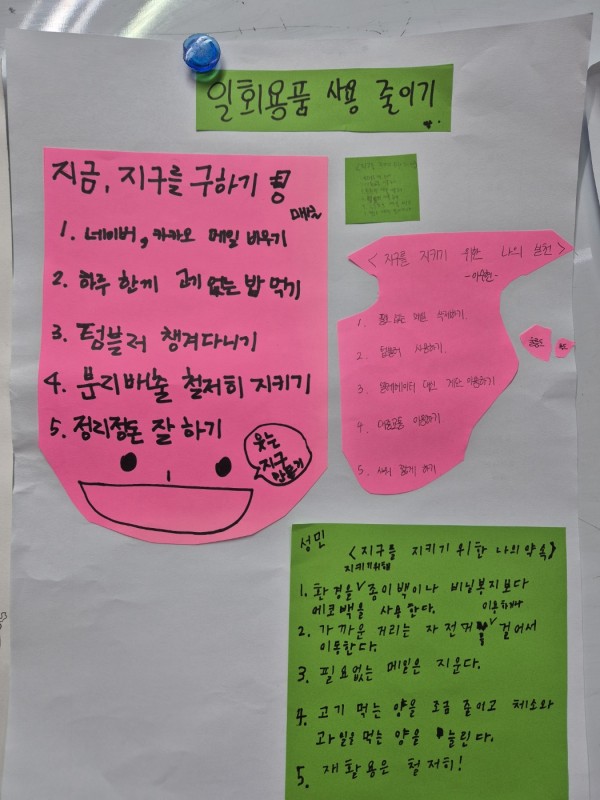 일회용품 사용 줄이기
지금, 지구를 구하기
매일
1. 네이버, 카카오 메일 비우기
2. 하루 한끼 고기 없는 밥 먹기
3. 텀블러 챙겨다니기
4. 분리배출 철저히 지키기
5. 정리정돈 잘 하기
웃는
지구
만들기
<지구를 지키기 위한 나의 실천>
1. 필요 없는 메일 삭제하기
2. 텀블러 사용하기
3. 엘레베이터 대신 계단 이용하기
4. 대중교통 이용하기
5. 샤워 짧게 하기
울릉도
독도
성민 <지구를 지키기 위한 나의 약속>
지키기위해
1. 환경을 종이백이나 비닐봉지보다
에코백을 사용한다.
이용하거나
2. 가까운 거리는 자전거 걸어서
이동한다.
3. 필요없는 메일은 지운다.
4. 고기 먹는 양을 조금 줄이고 체소와
과일을 먹는 양을 늘린다.
5. 재활용은 철저히!